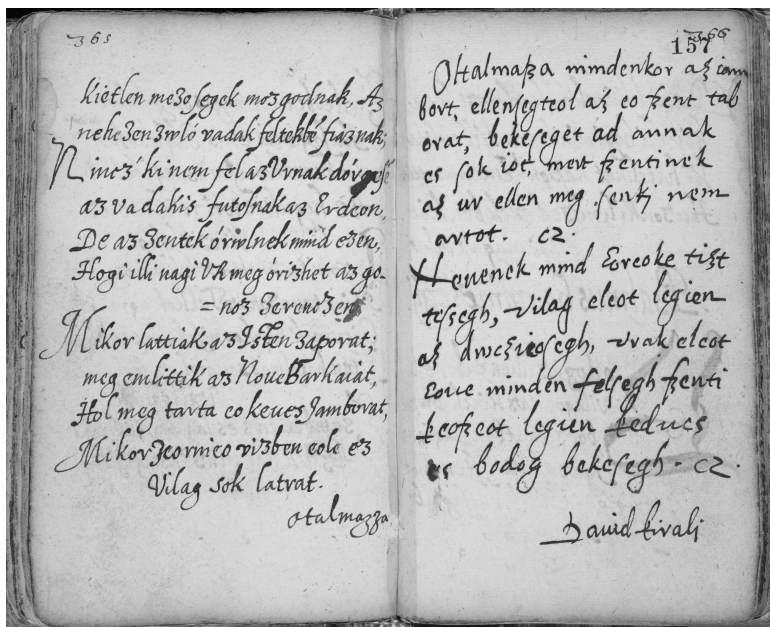 365
kietlen mezosegek mozgodnak, Az
nehezen zwlo vadak feltekbé fiaznak;
Nincz ki nem fel az Vrnak dórgesé
az vadakis futosnak az Erdeon,
De az Zentek órwlnek mind ezen,
Hogi illi nagi VR meg órizhet az go-
=noz Zerenczen
Mikor lattiak az Isten Zaporat;
meg emlittik az Noue Barkaiat,
Hol meg tarta eo keues Jamborat,
Mikor Zcornieo vizben eole ez
Vilag sok latrat.
otalmazza
366
157
Oltalmaßa mindenkor aß iam
bort, ellensegteol aß eo ßent tab
orat, bekeseget ad annak
es sok iot, mert ßentinek
aß ur ellen meg senkj nem
artot. cz.
Neuenek mind Eoreoke tißt
tessegh, Vilag eleot legien
aß dwczieosegh, vrak eleot
Eoue minden felsegh ßenti
keoßeot legien keducs
es bodog bekesegh. cz.
Dauid kiralj